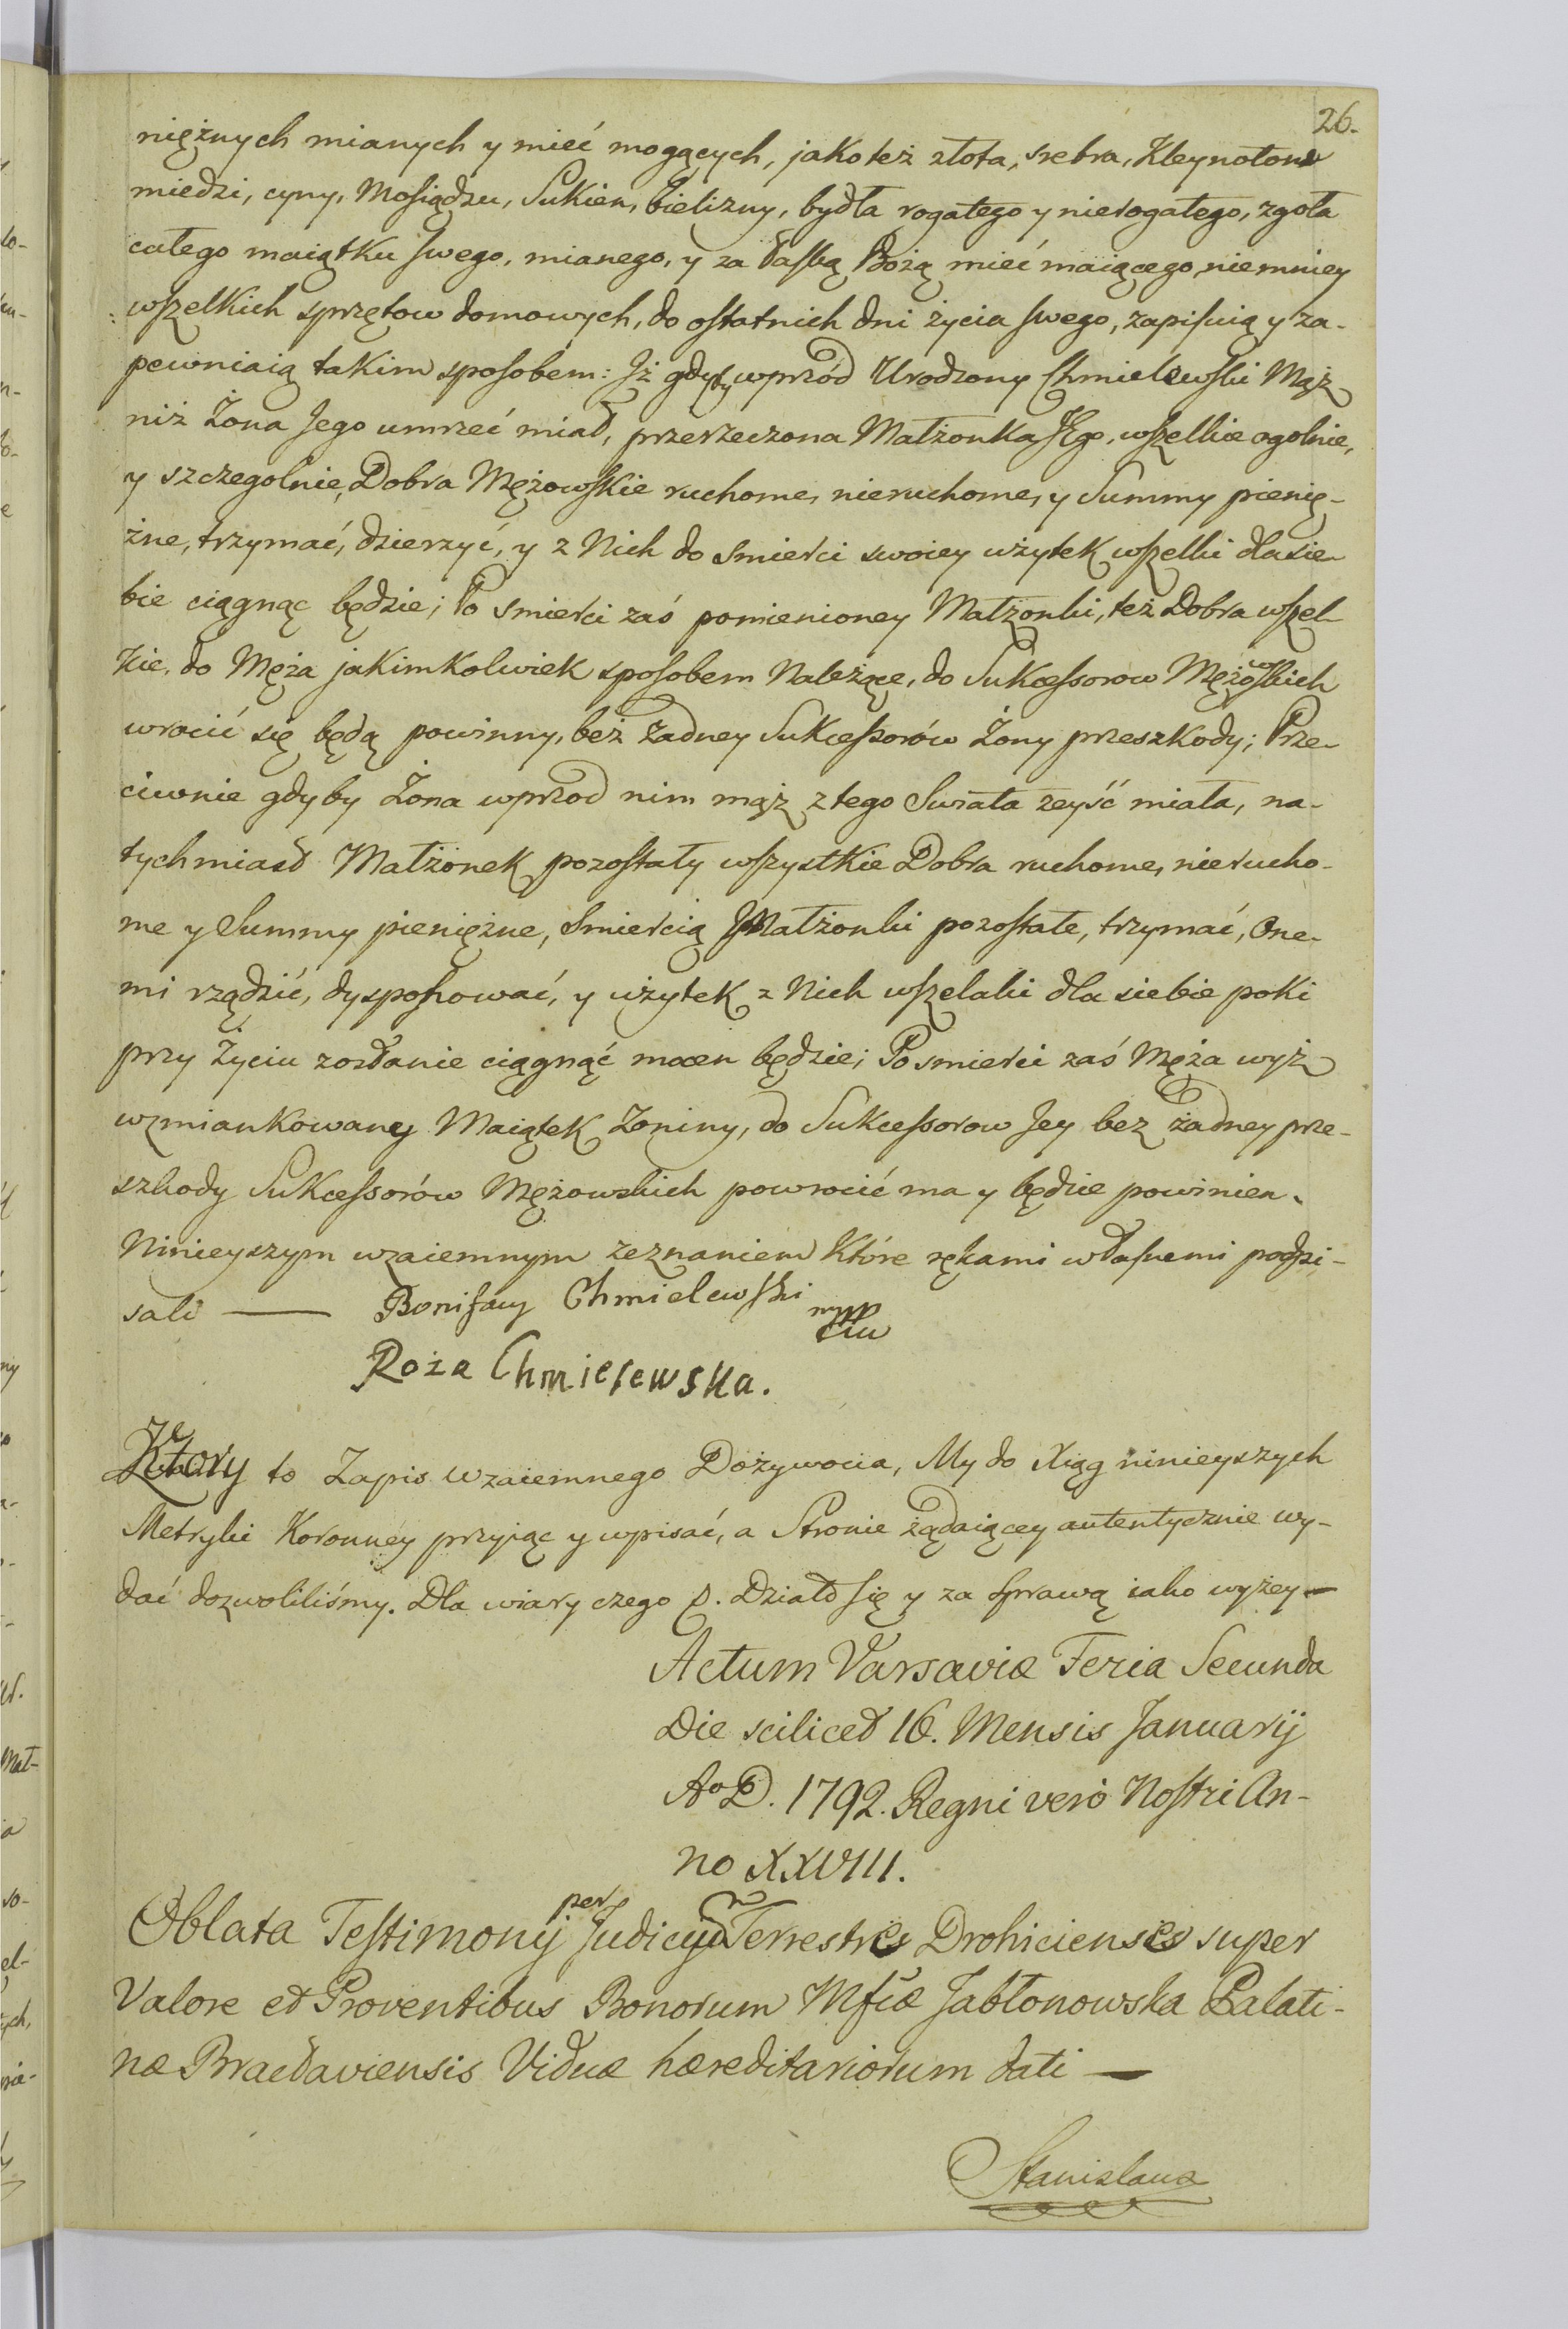 26.
niężnych mianych y mieć mogących, jako też złota, srebra, Kleynotow
miedzi, cyny, Mosiądzu, Sukien, bielizny, bydła rogatego y nierogatego, zgoła
całego maiątku swego, mianego, y za łaską Bożą mieć maiącego, niemniey
wszelkich sprzętow domowych, do ostatnich dni życia swego, zapisuią y za-
pewniaią takim sposobem: Jż gdyby wprzód Urodzony Chmielewski Mąż
niż Żona Jego umrzeć miał, przerzeczona Małżonka Jego, wszelkie ogolnie,
y szczegolnie, Dobra Mężowskie ruchome, nieruchome, y Summy pienię-
żne, trzymać, dzierzyć, y z Nich do smierci swoiey użytek wszelki dla sie-
bie ciągnąc będzie; Po smierci zaś pomienioney Małżonki, też Dobra wszel-
kie, do Męża jakimkolwiek sposobem Należące, do Sukcessorow Mężowskich
wrocić się będą powinny, beż żadney Sukcessorów Żony przeszkody; Prze-
ciwnie gdyby Żona wprzod nim mąż z tego Swiata zeyść miała, na-
tychmiast Małżonek pozostały wszystkie Dobra ruchome, nierucho-
me y Summy pieniężne, Smiercią Małżonki pozostałe, trzymać, One-
mi rządzić, dysponować, y użytek z Nich wszelaki dla siebie poki
przy Życiu zostanie ciągnąć mocen będzie; Po smierci zaś Męża wyż
wzmiankowany Maiątek Żoniny, do Sukcessorow Jey bez żadney prze-
szkody Sukcessorów Mężowskich powrocić ma y będzie powinien.
Ninieyszym wzaiemnym zeznaniem Które rękami własnemi podpi-
sali — Bonifacy Chmielewski mpp
Roża Chmielewska.
Który to Zapis wzaiemnego Dożywocia, My do Xiąg ninieyszych
Metryki Koronney przyiąc y wpisać, a Stronie żądaiącey autentycznie wy-
dać dozwoliliśmy. Dla wiary czego p. Działo się y za sprawą iako wyżey —
Actum Varsaviæ Feria Secunda
Die scilicet 16. Mensis Januarij
Aº D. 1792. Regni verò Nostri An-
no XXVIII.
Oblata Testimonij per Judicium Terrestre Drohiciense super
Valore et Proventibus Bonorum Mfcæ Jabłonowska Palati-
næ Braclaviensis Viduæ hæreditariorum dati —
Stanislaus